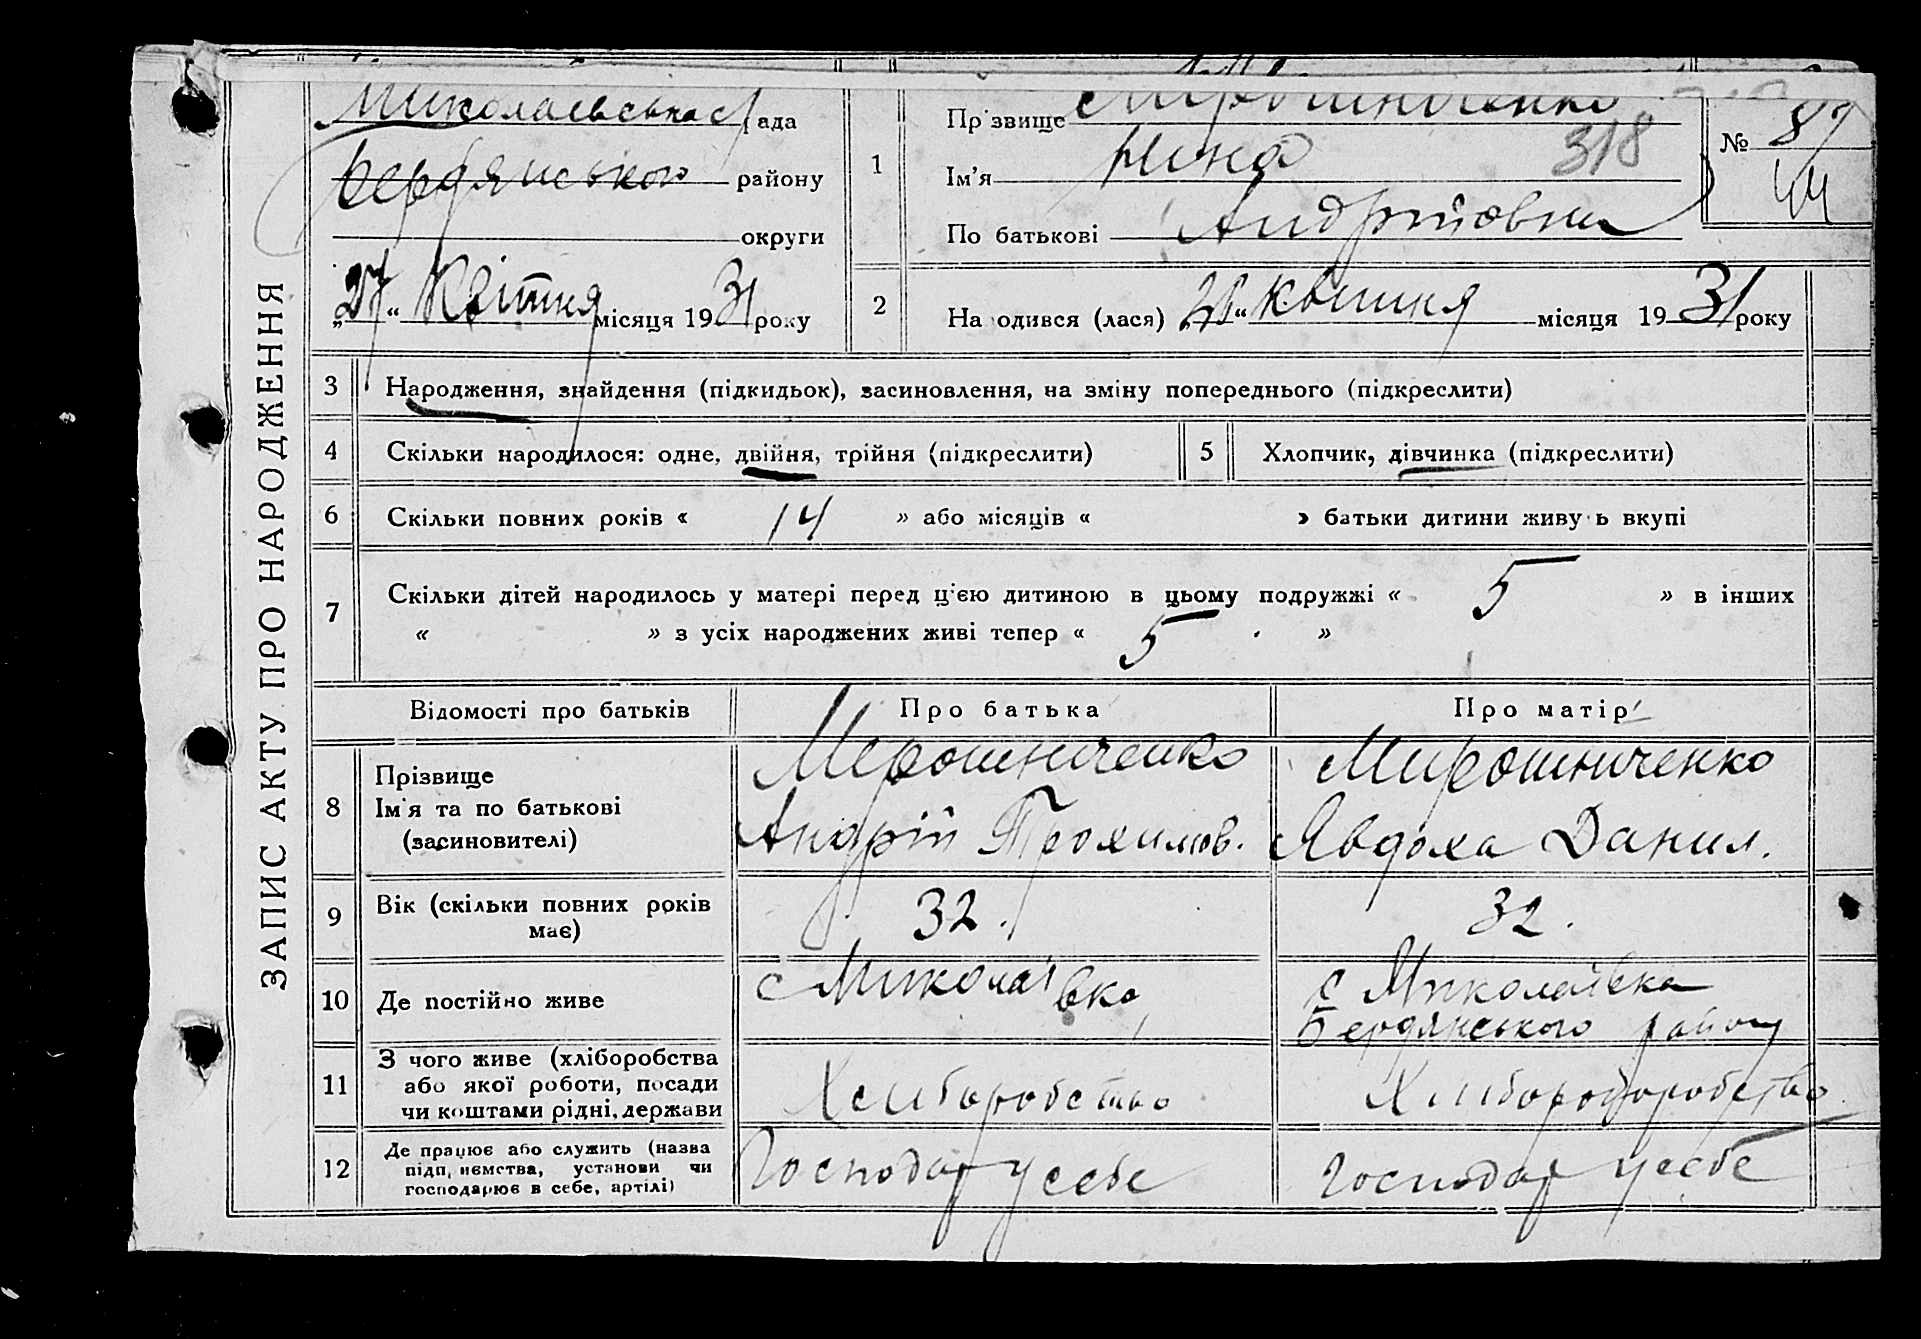 ЗАПИС АКТУ ПРО НАРОДЖЕННЯ
Миколаевська с/рада
Бердянського району
округи
„27“ Квітня місяця 1931 року
1
Прізвище Мирошниченко
Ім'я Нина
318
По батькові Андріївна
№ 87
44
2
Народився (лася) „25“ Квітня місяця 1931 року
3 Народження, знайдення (підкидьок), засиновлення, на зміну попереднього (підкреслити)
4 Скільки народилося: одне, двійня, трійня (підкреслити)
5 Хлопчик, дівчинка (підкреслити)
6 Скільки повних років « 14 » або місяців « » батьки дитини живуть вкупі
7 Скільки дітей народилось у матері перед цією дитиною в цьому подружжі « 5 » в інших
« » з усіх народжених живі тепер « 5 »
Відомості про батьків Про батька Про матір
8 Прізвище
Ім'я та по батькові
(засиновителі)
Мерошниченко
Андрій Трохимов.
Мирошниченко
Явдоха Данил.
9 Вік (скільки повних років
має)
32.
32.
10 Де постійно живе
с Миколаівка
с Миколаївка
Бердянського району
11 З чого живе (хліборобства
або якої роботи, посади
чи коштами рідні, держави
Хлиборобство
Хлибороборобство
12 Де працює або служить (назва
підприємства, установи чи
господарює в себе, артілі)
Господар у себе
Господар у себе